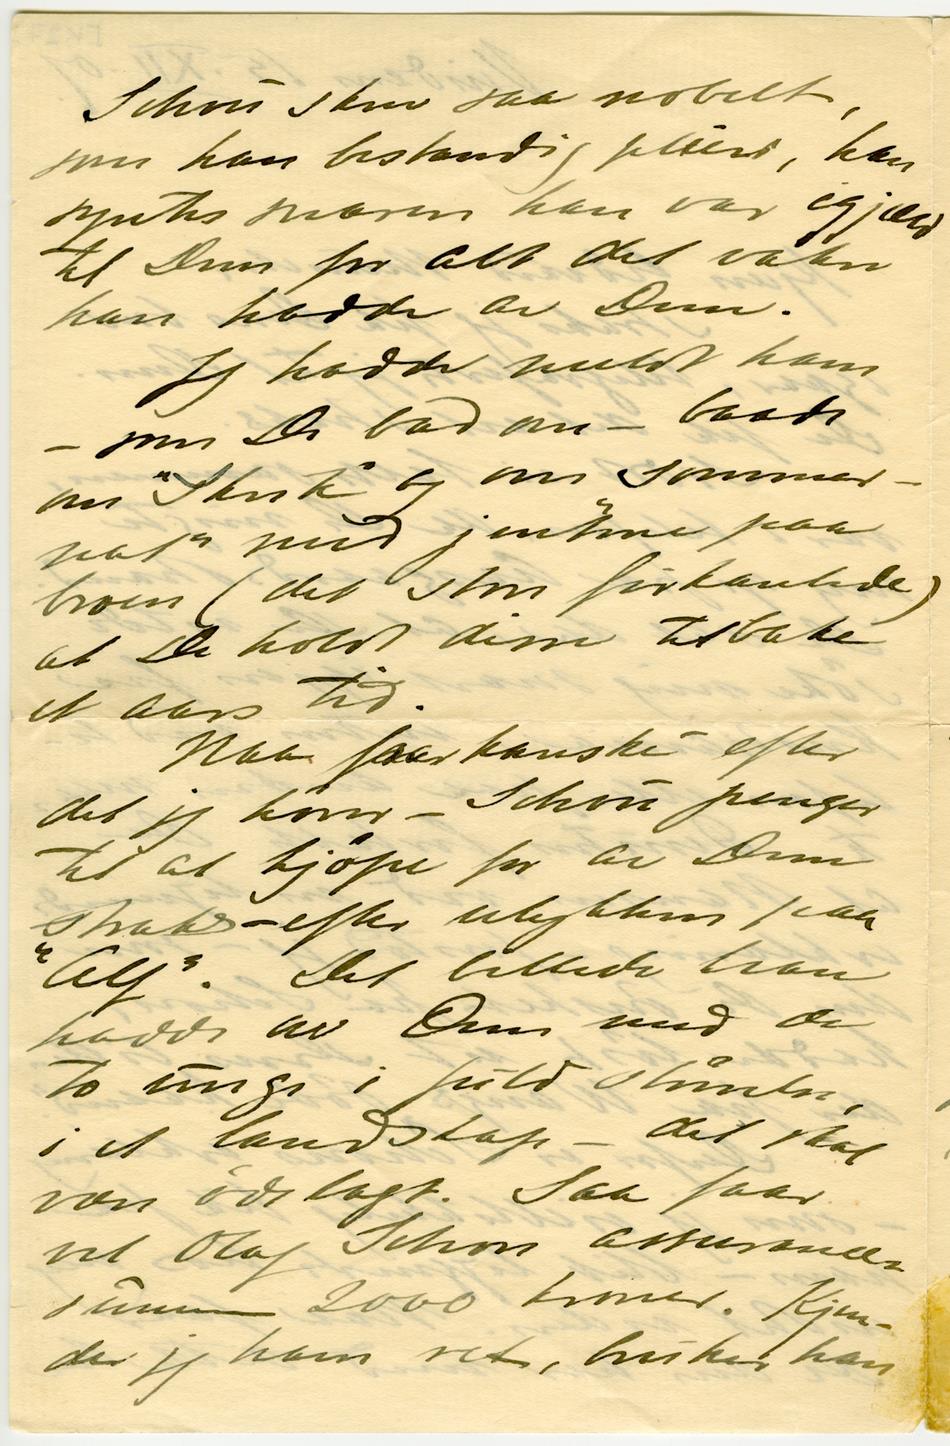 Schou skrev saa nobelt,
som han bestandig pleier, han
syntes snarere han var igjæld
til Dem for alt det vakre
han hadde av Dem.
Jeg hadde meldt ham
– som De bad om – baade
om "Skrik" og om "Sommer-
nat" med jentene paa
broen (det store firkantede)
at De holdt disse tilbake
et aars tid.
Naa faar kanske efter
det jeg hører – Schou penger
til at kjöpe for av Dem
straks – efter ulykken paa
"Alf". Det billede han
hadde av Dem med de
to unge i fuld
i et landskap – det skal
være ödelagt. Saa faar
vel Olaf Schou assurance
summen 2000 kroner. Kjen-
der jeg ham ret, bruker han